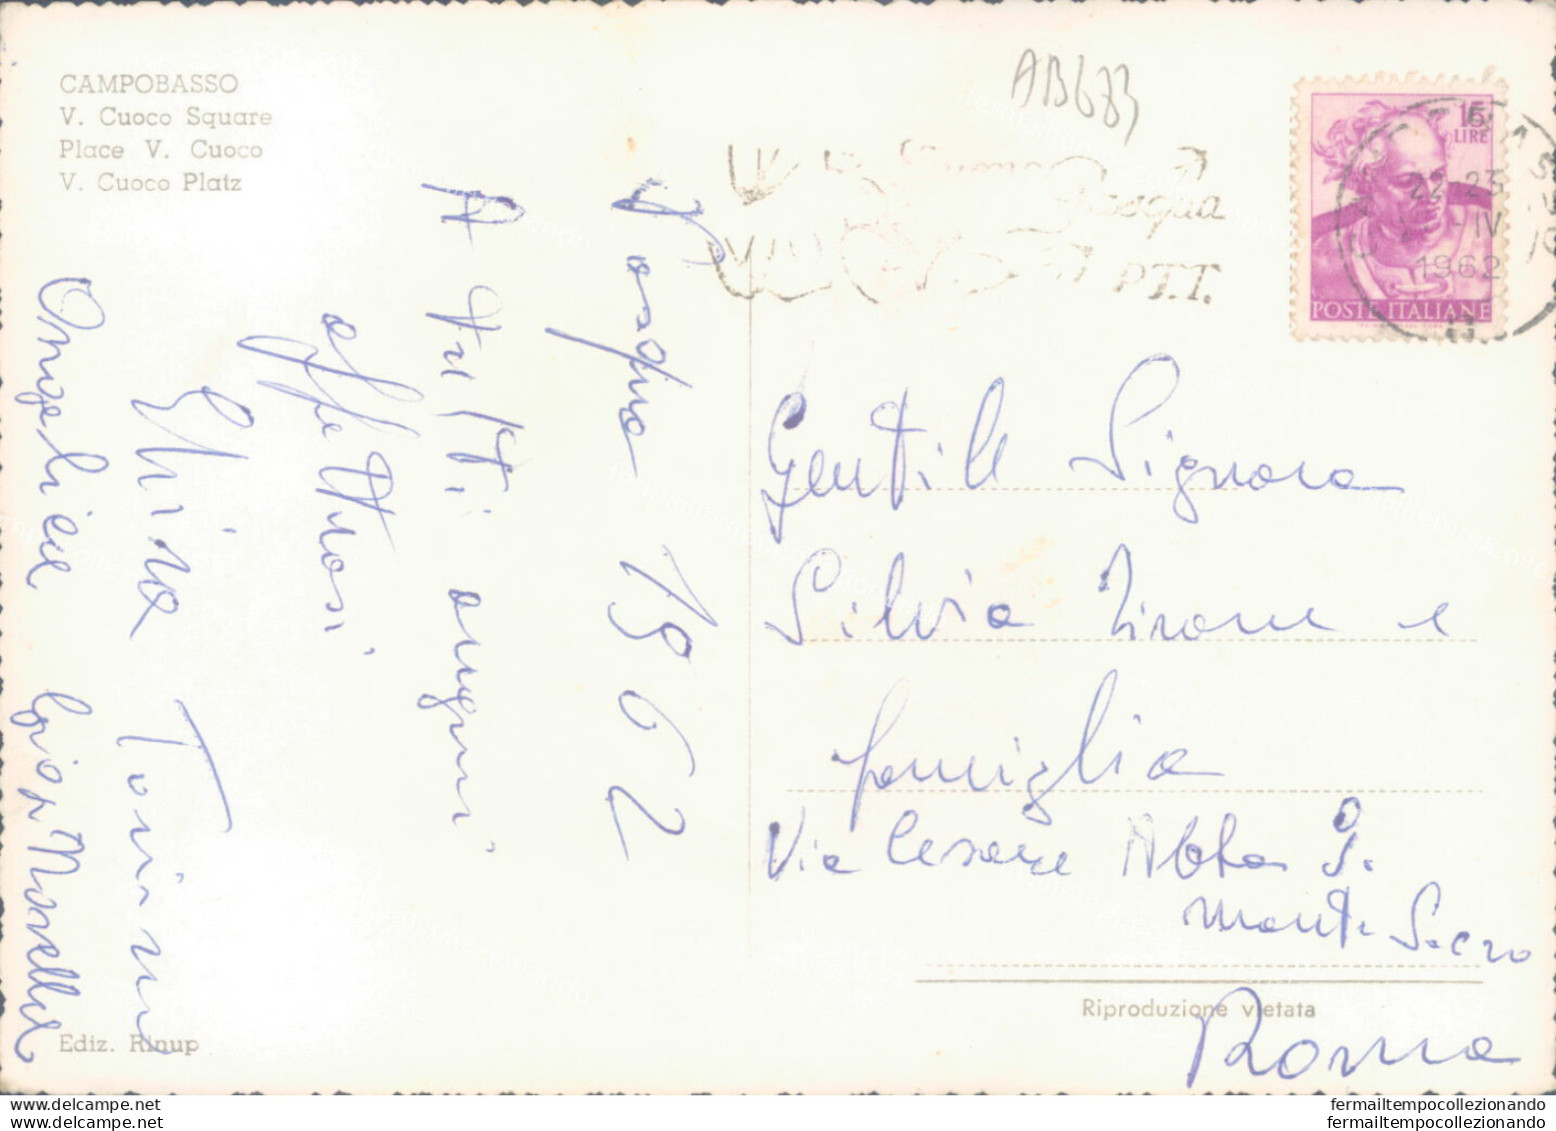 CAMPOBASSO
V. Cuoco Square
Place V. Cuoco
V. Cuoco Platz
AB683
Buona
Pasqua
P.T.T.
15
LIRE
22-23
IV
1962
POSTE ITALIANE
Pasqua 1962
A tutti auguri
affettuosi
Elvira Tonino
Angelica
Gentile Signora
Silvia Zirone e
famiglia
Via Cesare Abba 9.
Monte Sacro
Roma
Riproduzione vietata
Ediz. Rinup
fermailtempocollezionando
fermailtempocollezionando
fermailtempocollezionando.com
fermailtempocollezionando.com